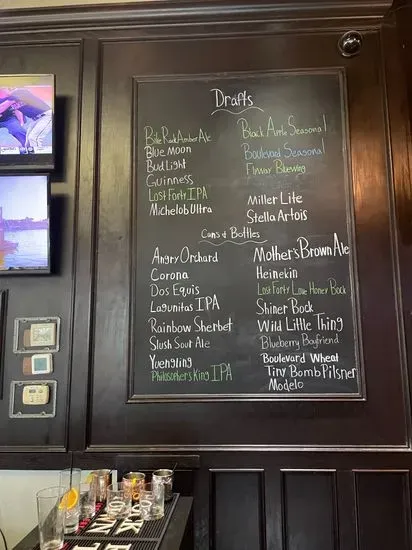 Drafts
Bike Rack Amber Ale
Blue Moon
Bud Light
Guinness
Lost Forty IPA
Michelob Ultra
Black Apple Seasonal
Boulevard Seasonal
Flyway Brewing
Miller Lite
Stella Artois
Cans & Bottles
Angry Orchard
Corona
Dos Equis
Lagunitas IPA
Rainbow Sherbet
Slush Sour Ale
Yuengling
Philosopher's King IPA
Mother's Brown Ale
Heinekin
Lost Forty Love Honey Bock
Shiner Bock
Wild Little Thing
Blueberry Boyfriend
Boulevard Wheat
Tiny Bomb Pilsner
Modelo